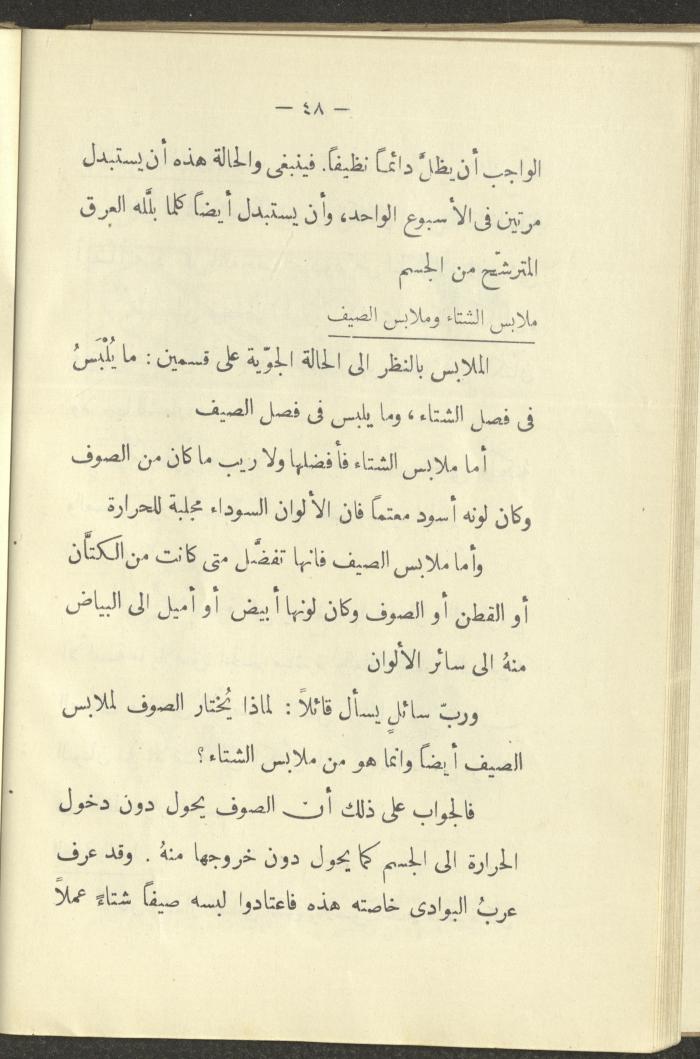 — ٤٨ —
الواجب أن يظلَّ دائماً نظيفاً. فينبغى والحالة هذه أن يستبدل
مرتين فى الأسبوع الواحد، وأن يستبدل أيضاً كلما بلَّله العرق
المترشّح من الجسم
ملابس الشتاء وملابس الصيف
الملابس بالنظر الى الحالة الجوّية على قسمين : ما يُلْبَسُ
فى فصل الشتاء، وما يلبس فى فصل الصيف
أما ملابس الشتاء فأفضلها ولا ريب ما كان من الصوف
وكان لونه أسود معتماً فان الألوان السوداء مجلبة للحرارة
وأما ملابس الصيف فانها تفضَّل متى كانت من الكتَّان
أو القطن أو الصوف وكان لونها أبيض أو أميل الى البياض
منهُ الى سائر الألوان
وربّ سائلٍ يسأل قائلاً : لماذا يُختار الصوف لملابس
الصيف أيضاً وانما هو من ملابس الشتاء ؟
فالجواب على ذلك أن الصوف يحول دون دخول
الحرارة الى الجسم كما يحول دون خروجها منهُ . وقد عرف
عربُ البوادى خاصته هذه فاعتادوا لبسه صيفاً شتاءً عملاً